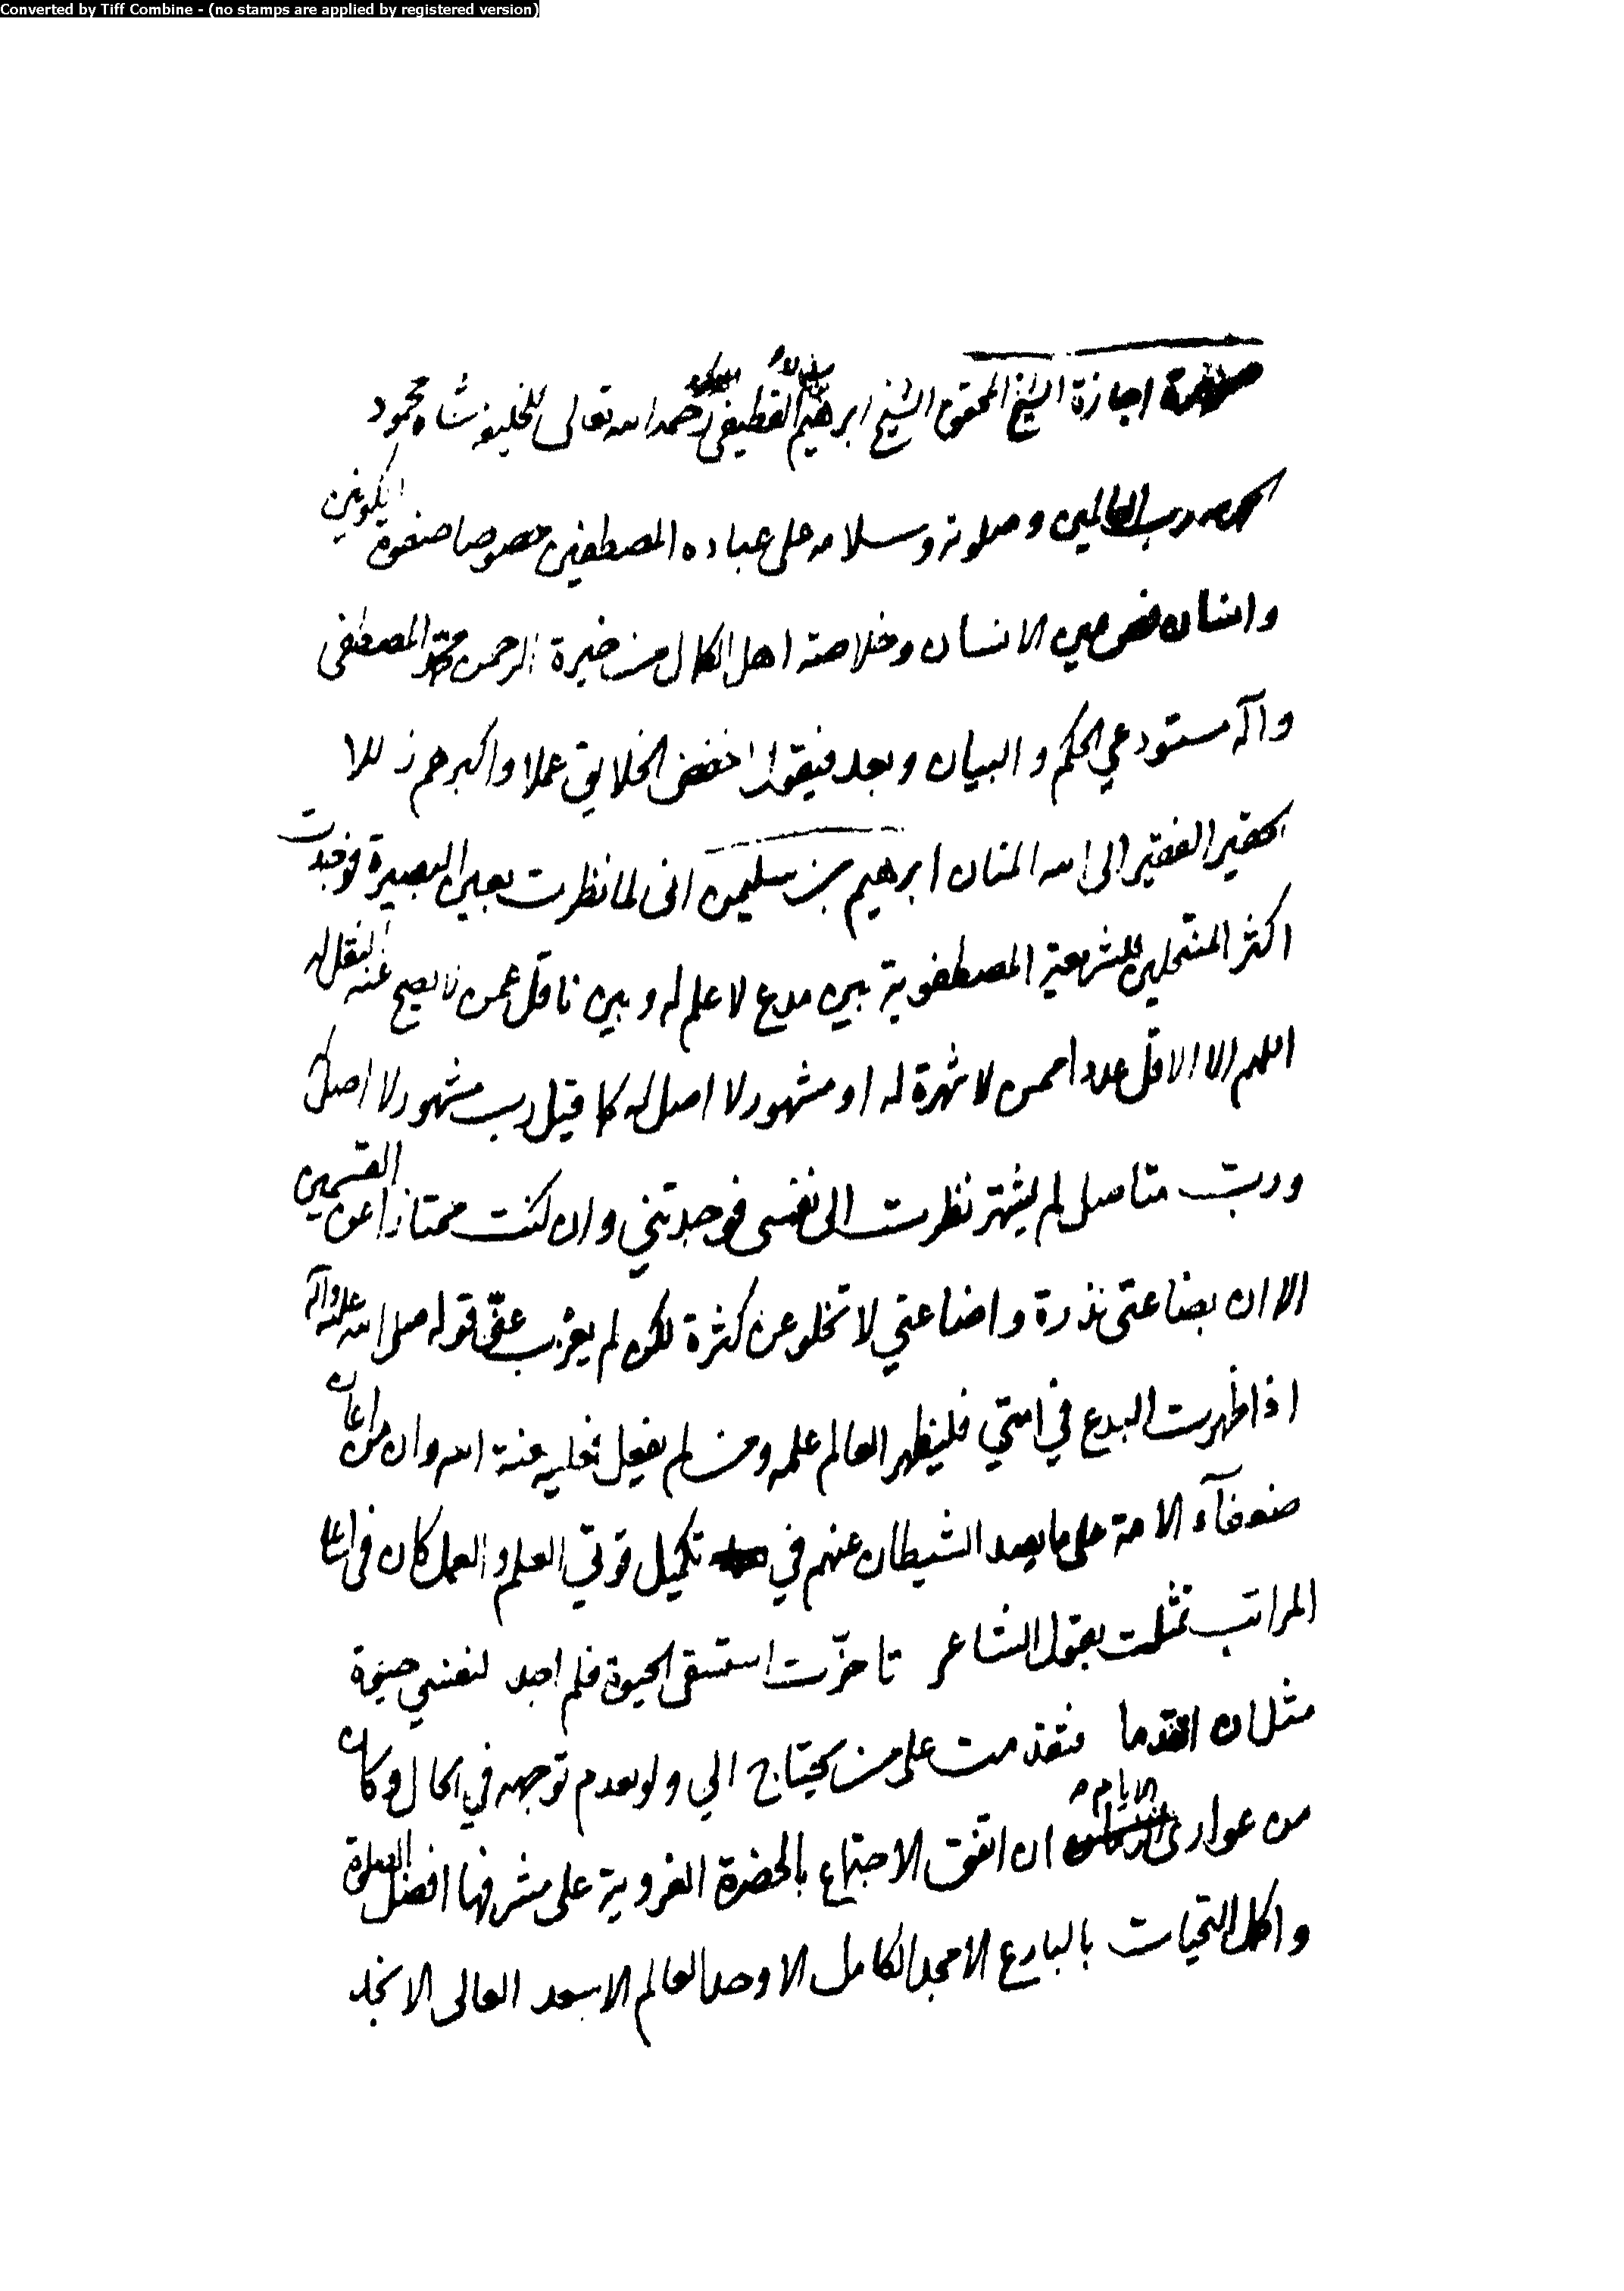 Converted by Tiff Combine - (no stamps are applied by registered version)
صورة اجازة الشيخ المحقق الشيخ ابرهيم القطيفي رحمه الله تعالى للخليفة شاه محمود
الحمد لله رب العالمين وصلوته وسلامه على عباده المصطفين خصوصا صفوة الكونين
وانسان عين الانسان وخلاصة اهل الكمال من خيرة الرحمن محمد المصطفى
وآله مستودعي الحكم والبيان وبعد فيقول اخفض الخلايق عملا واكبرهم زللا
الحقير الفقير الى الله المنان ابرهيم بن سليمن انى لما نظرت بعين البصيرة فوجدت
اكثر المنتحلين للشريعة المصطفوية بين مدع لا علم له وبين ناقل عمن لا يصح عنه النقل له
اللهم الا الاقل عددا ممن لا شهرة له او مشهور لا اصل له كما قيل رب مشهور لا اصل له
ورب متاصل لم يشتهر نظرت الى نفسى فوجدتني وان كنت ممتازا عن القسمين
الا ان بضاعتى نذرة واضاعتي لا تخلو عن كثرة لكن لم يعزب عنى قوله صلى الله عليه وآله
اذا ظهرت البدع في امتي فليظهر العالم علمه ومن لم يفعل فعليه لعنة الله وان من اعان
ضعفآء الامة على ما يصد الشيطان عنهم في تكميل قوتي العلم والعمل كان فى اعلا
المراتب تمثلت بقول الشاعر تاخرت استبقى الحيوة فلم اجد لنفسي حيوة
مثل ان اتقدما فتقدمت على من يحتاج الي ولو بعدم توجهه في الحال وكان
من عوارى الايام ان اتفق الاجتماع بالحضرة الغروية على مشرفها افضل الصلوة
واكمل التحيات بالبارع الامجد الكامل الاوحد العالم الاسعد العالى الانجد